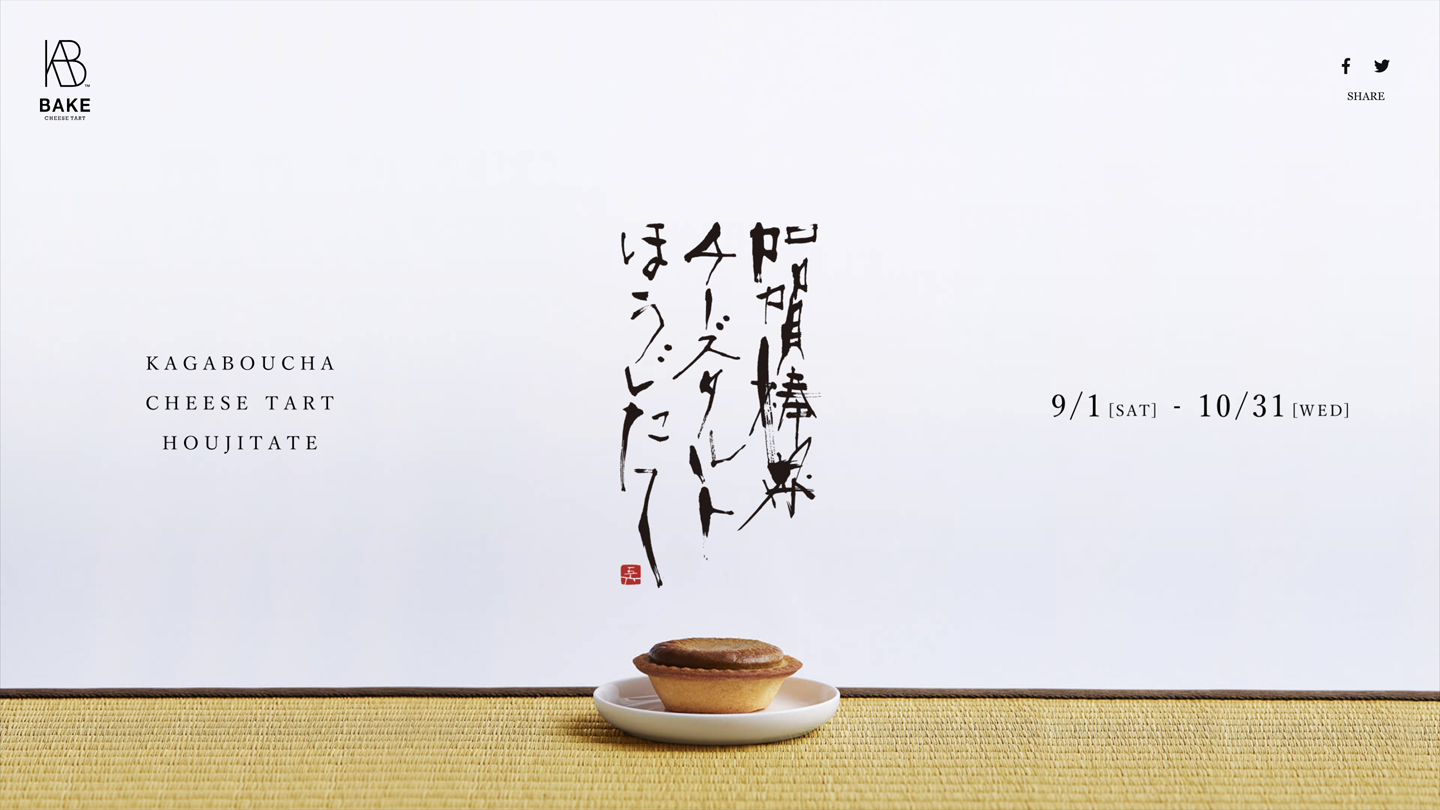 KAB
™
BAKE
CHEESE TART
SHARE
加賀棒茶
チーズタルト
ほうじたて
KAGABOUCHA
CHEESE TART
HOUJITATE
9/1 [SAT] - 10/31 [WED]